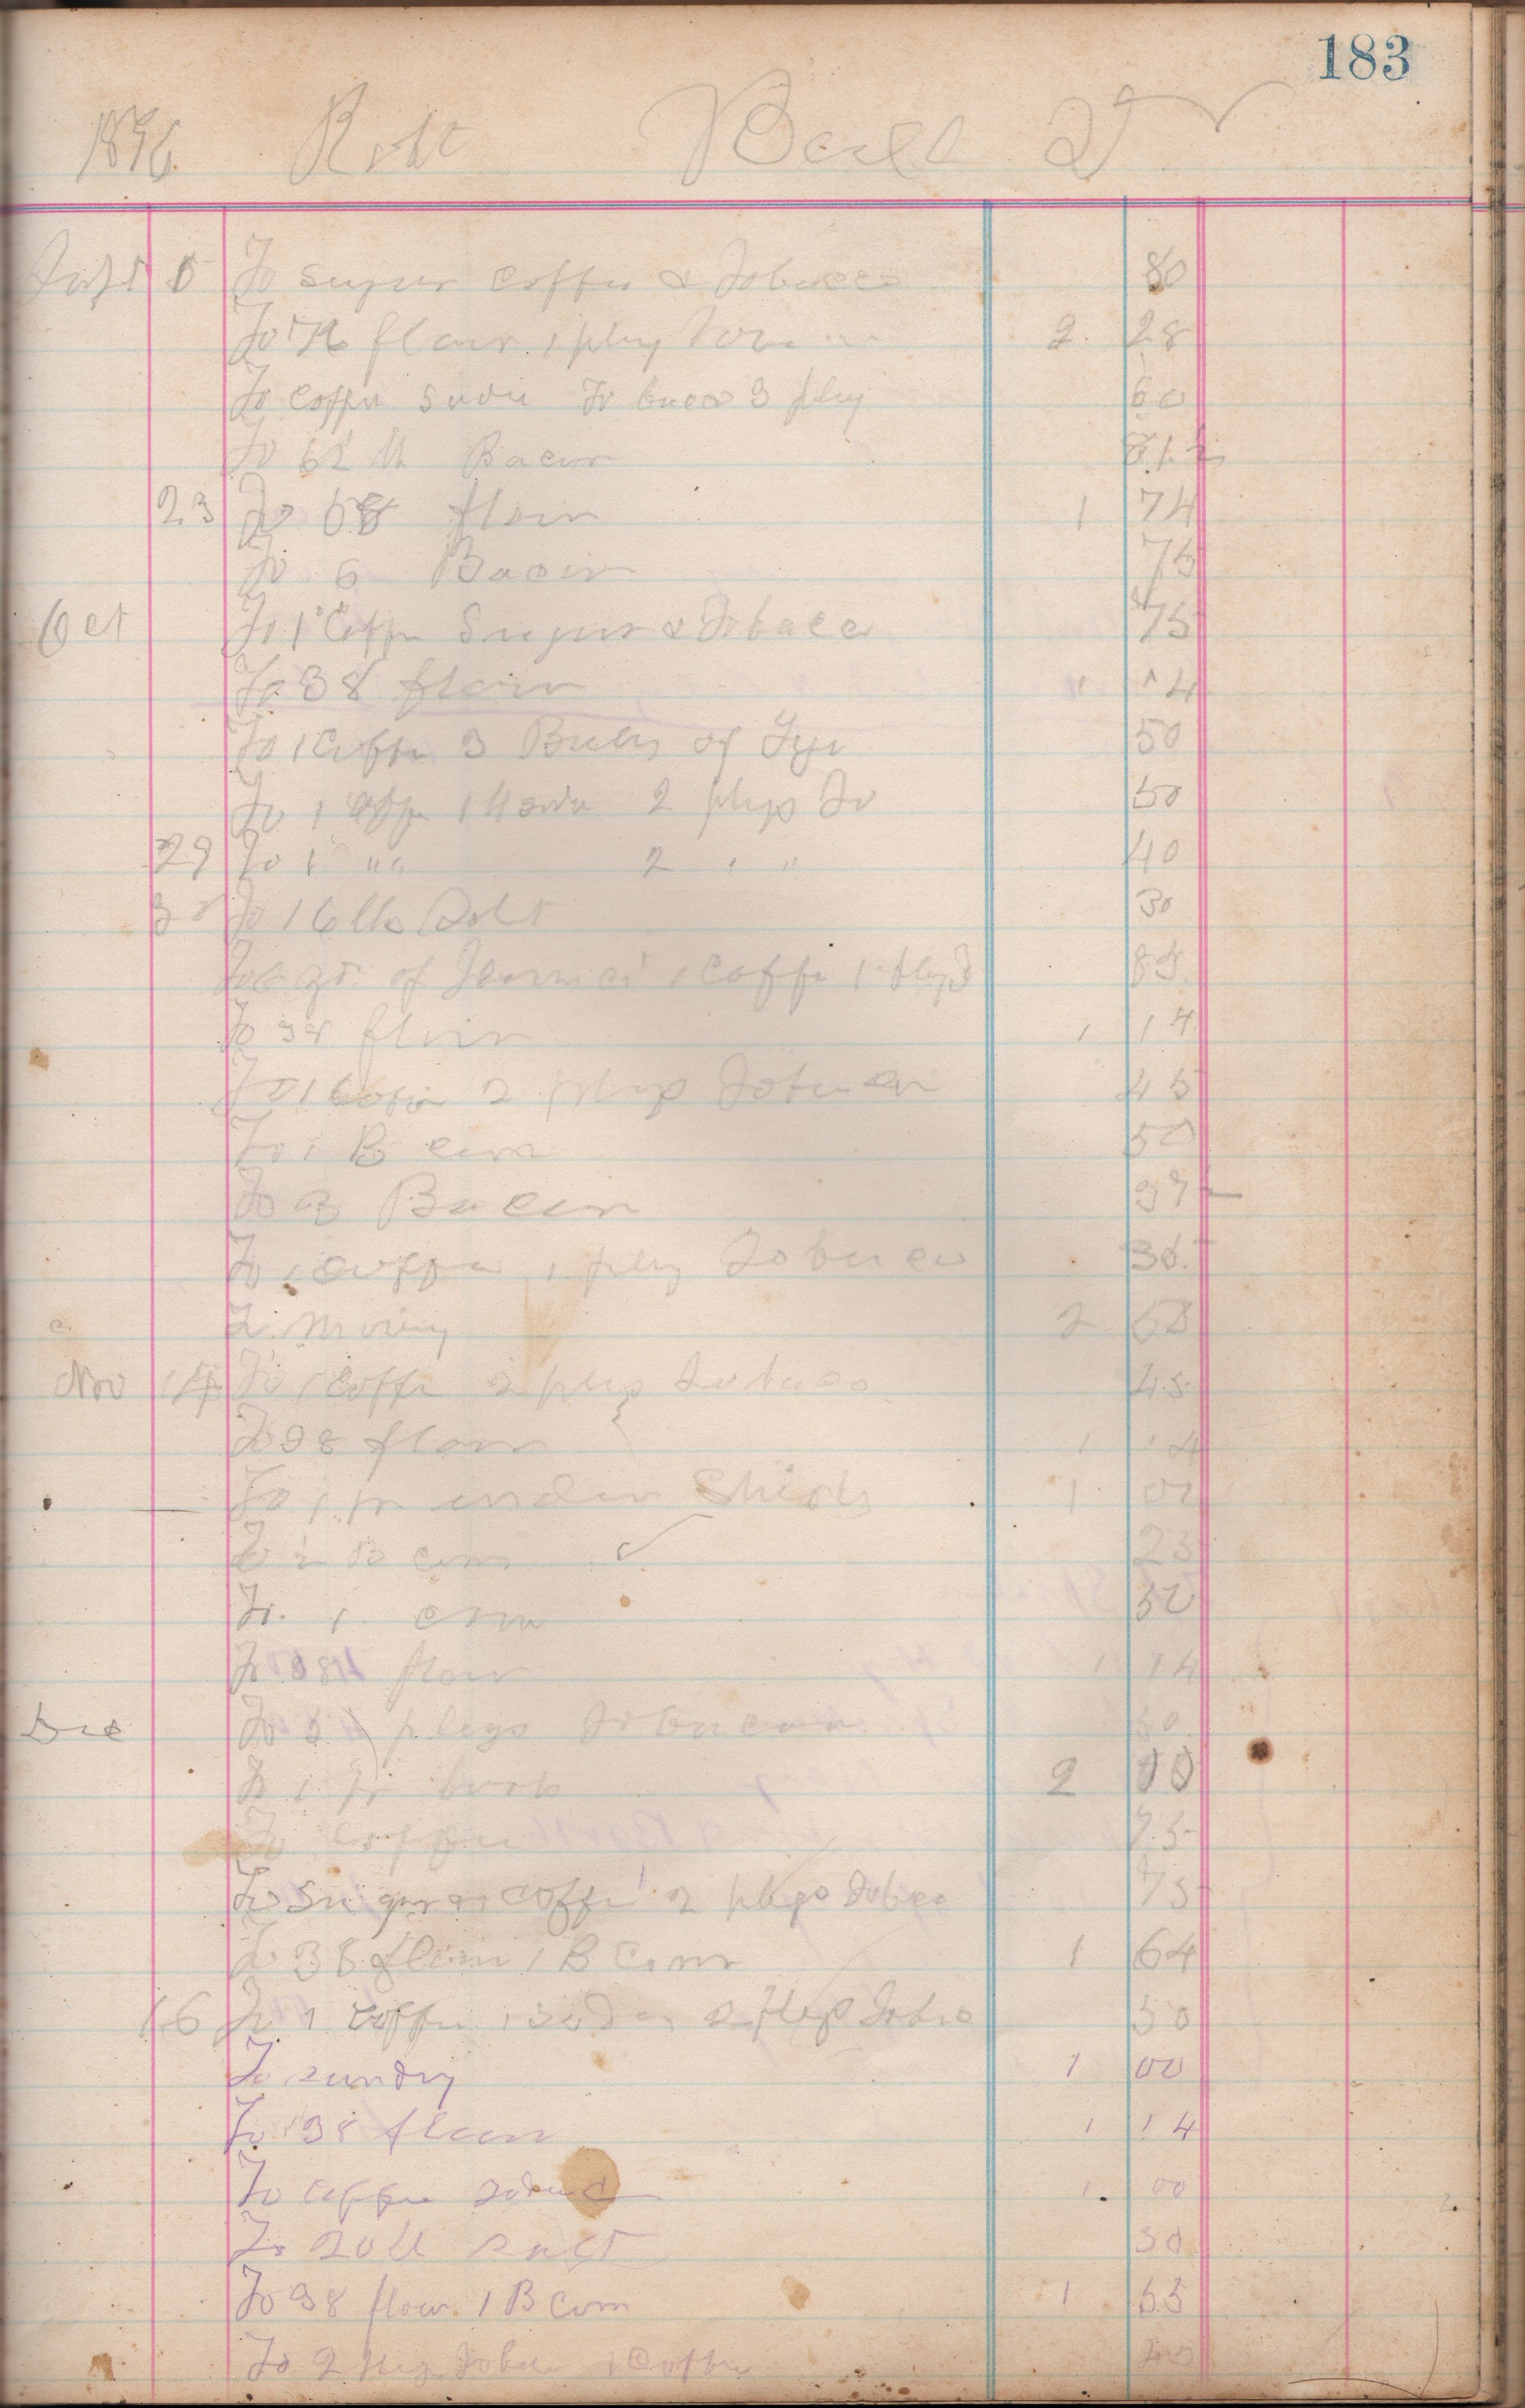 183
1896 Robt Ball Dr
Sept 5 To Sugar Coffee & Tobacco 80
To 76 flour 1 plug 2 28
To Coffee Soda Tobaco 3 plug 60
To 6½ lb Bacon 81
23 To 58 flour 1 74
To 6 Bacon 75
Oct To 1 Coffe Sugar & Tobacco 75
To 38 flour 1 14
To 1 Coffe 3 of 50
To 1 Coffe 1 lb Soda 2 plugs To 50
29 To 1 " " 2 " " 40
30 To 16 lbs Salt 30
of 1 Coffe 1 plug T 85
To 38 flour 1 14
To 1 Coffe 2 plugs Tobaco 45
To 1 B corn 50
To 3 Bacon 37
To 1 Coffe 1 plug Tobacco 35
To 2 50
Nov 14 To 1 Coffe 2 plugs Tobaco 45
To 38 flour 1 14
To 1 pr under Shirts 1 00
To ½ B corn 25
To 1 corn 50
To 38 flour 1 14
Dec To plugs Tobaco
To 1 pr boots 2 00
To Coffee 25
To Sugar Coffe 2 plugs Tobaco 75
To 38 flour 1 B Corn 1 64
16 To 1 Coffe 1 soda 2 plugs Tobac 50
To sundry 1 00
To 38 flour 1 14
To coffee 1 00
To 20 lb salt 30
To 38 flour 1 B Corn 1 55
To 2 plug Tobac 1 Coffe